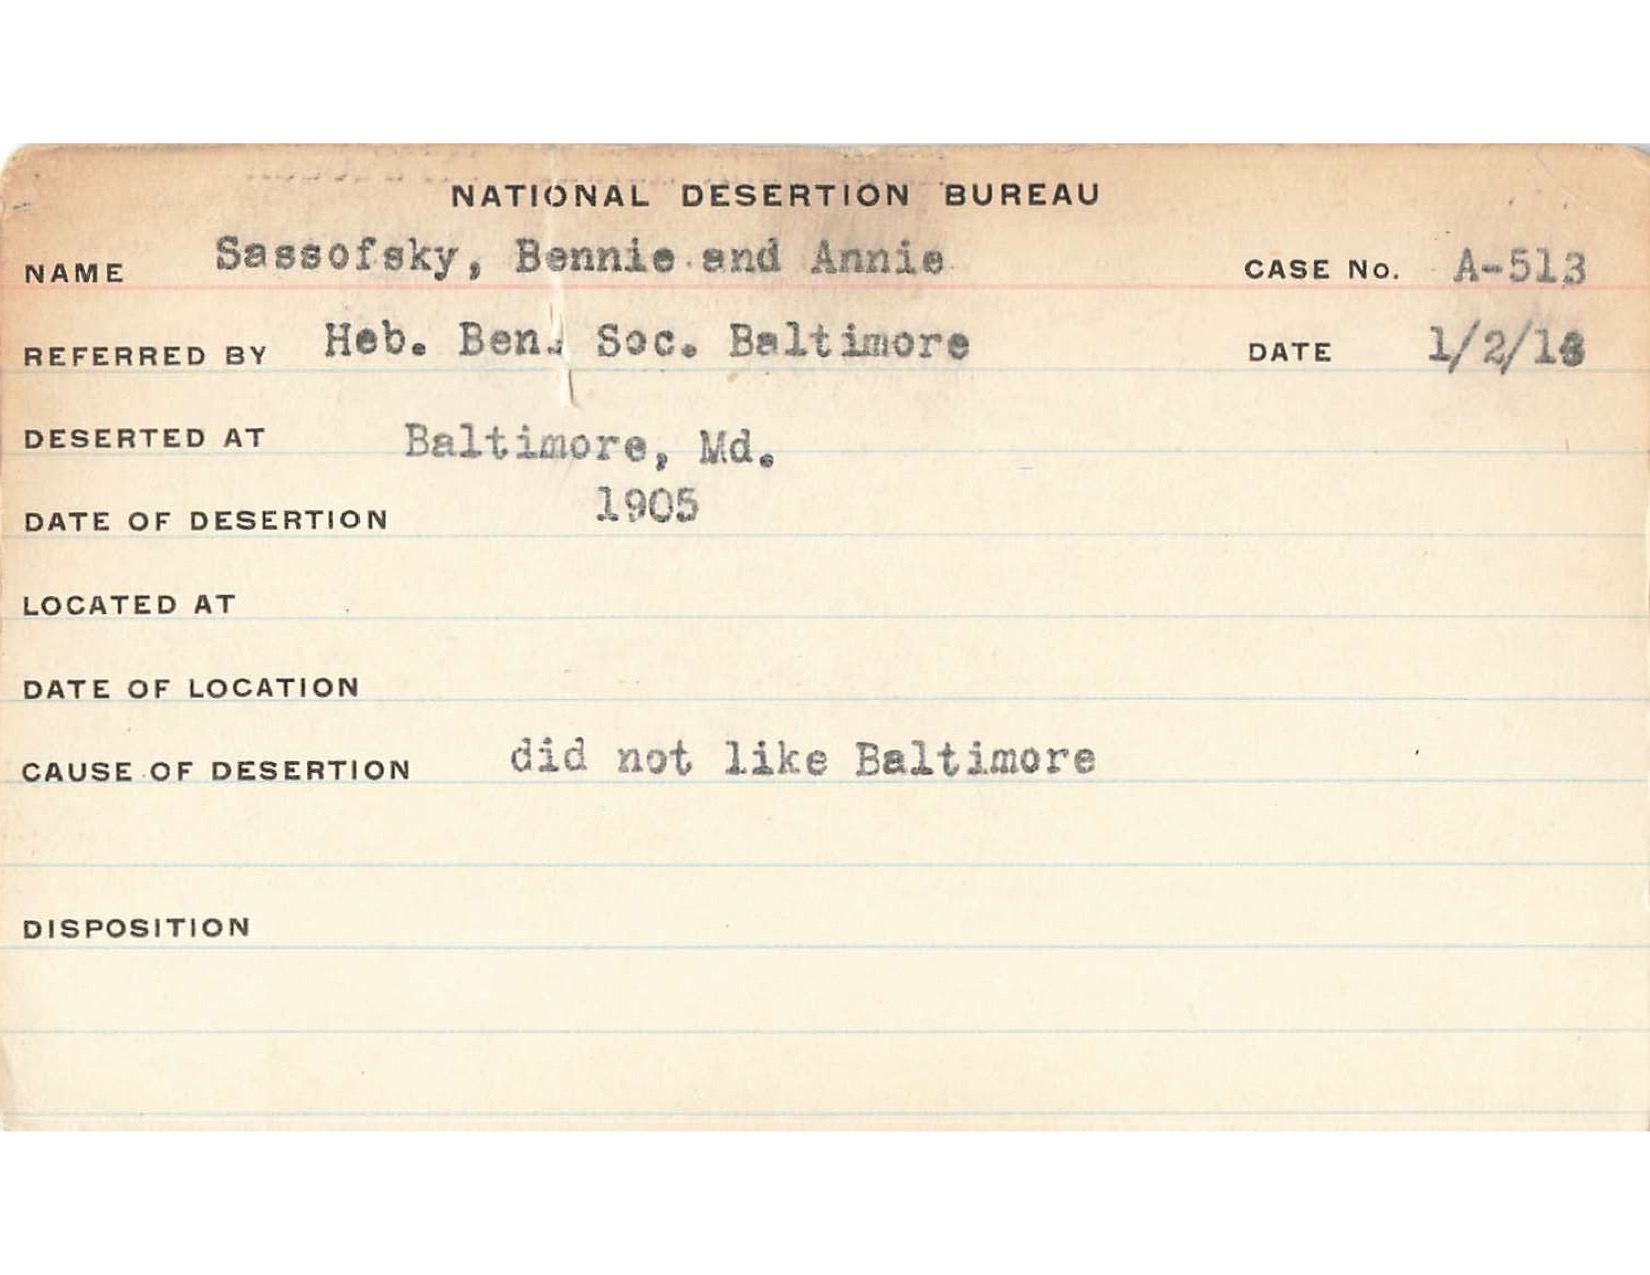 NATIONAL DESERTION BUREAU
NAME Sassofsky, Bennie and Annie CASE No. A-513
REFERRED BY Heb. Ben. Soc. Baltimore DATE
DESERTED AT Baltimore, Md.
DATE OF DESERTION 1905
LOCATED AT
DATE OF LOCATION
CAUSE OF DESERTION did not like Baltimore
DISPOSITION